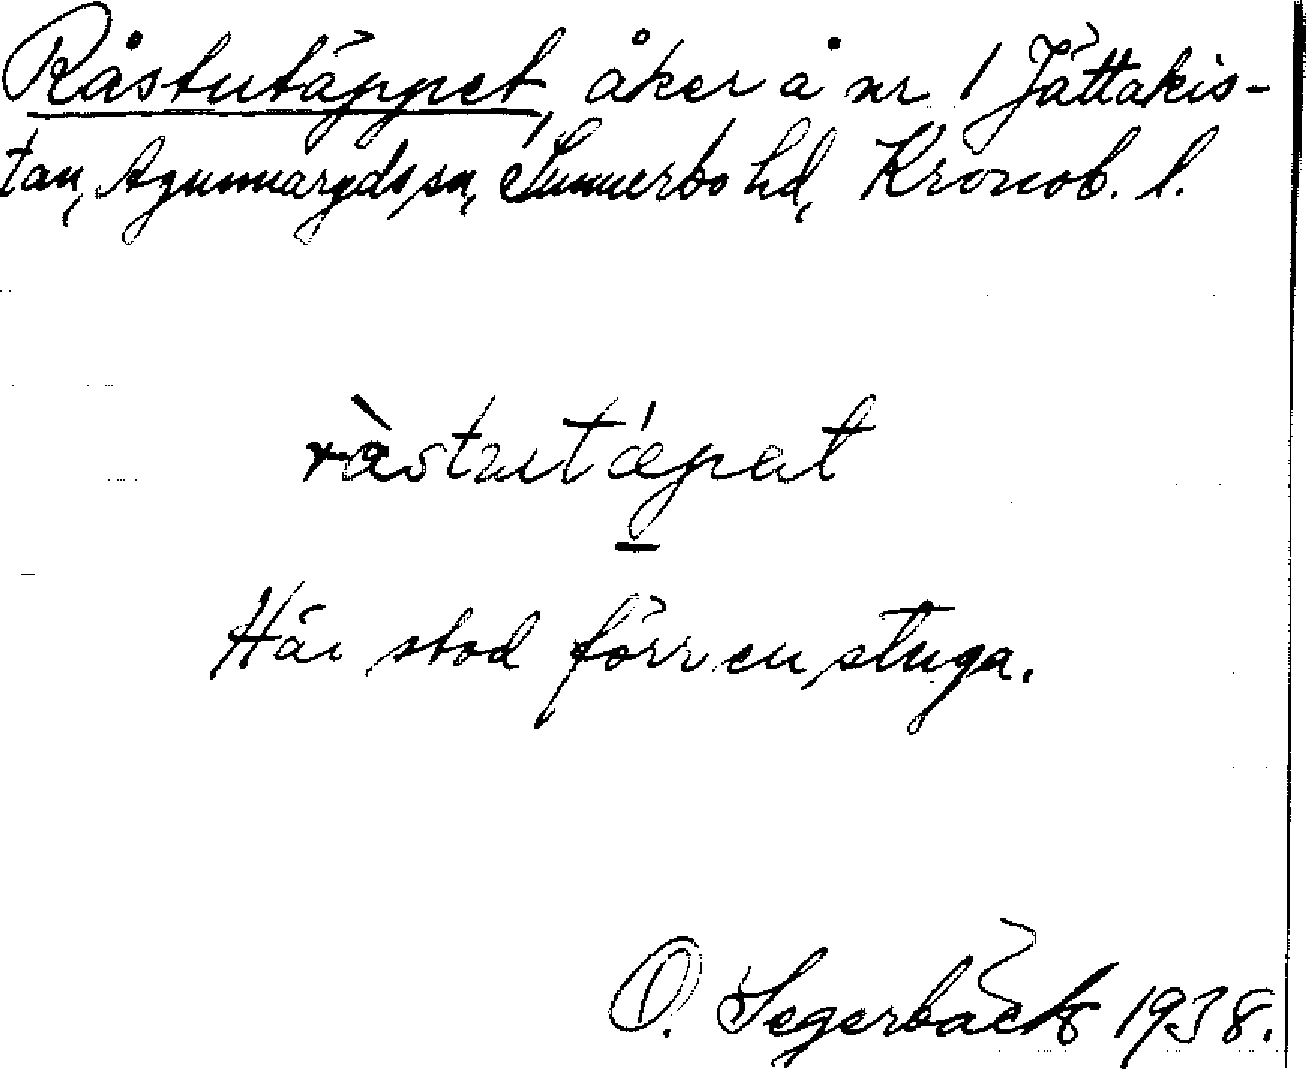 Råstutäppet, åker å nr 1 Jättakis-
tan, Agunnaryds sn, Sunnerbo hd, Kronob. l.
ràstutǽpat
Här stod förr en stuga.
O. Segerbäck 1938.